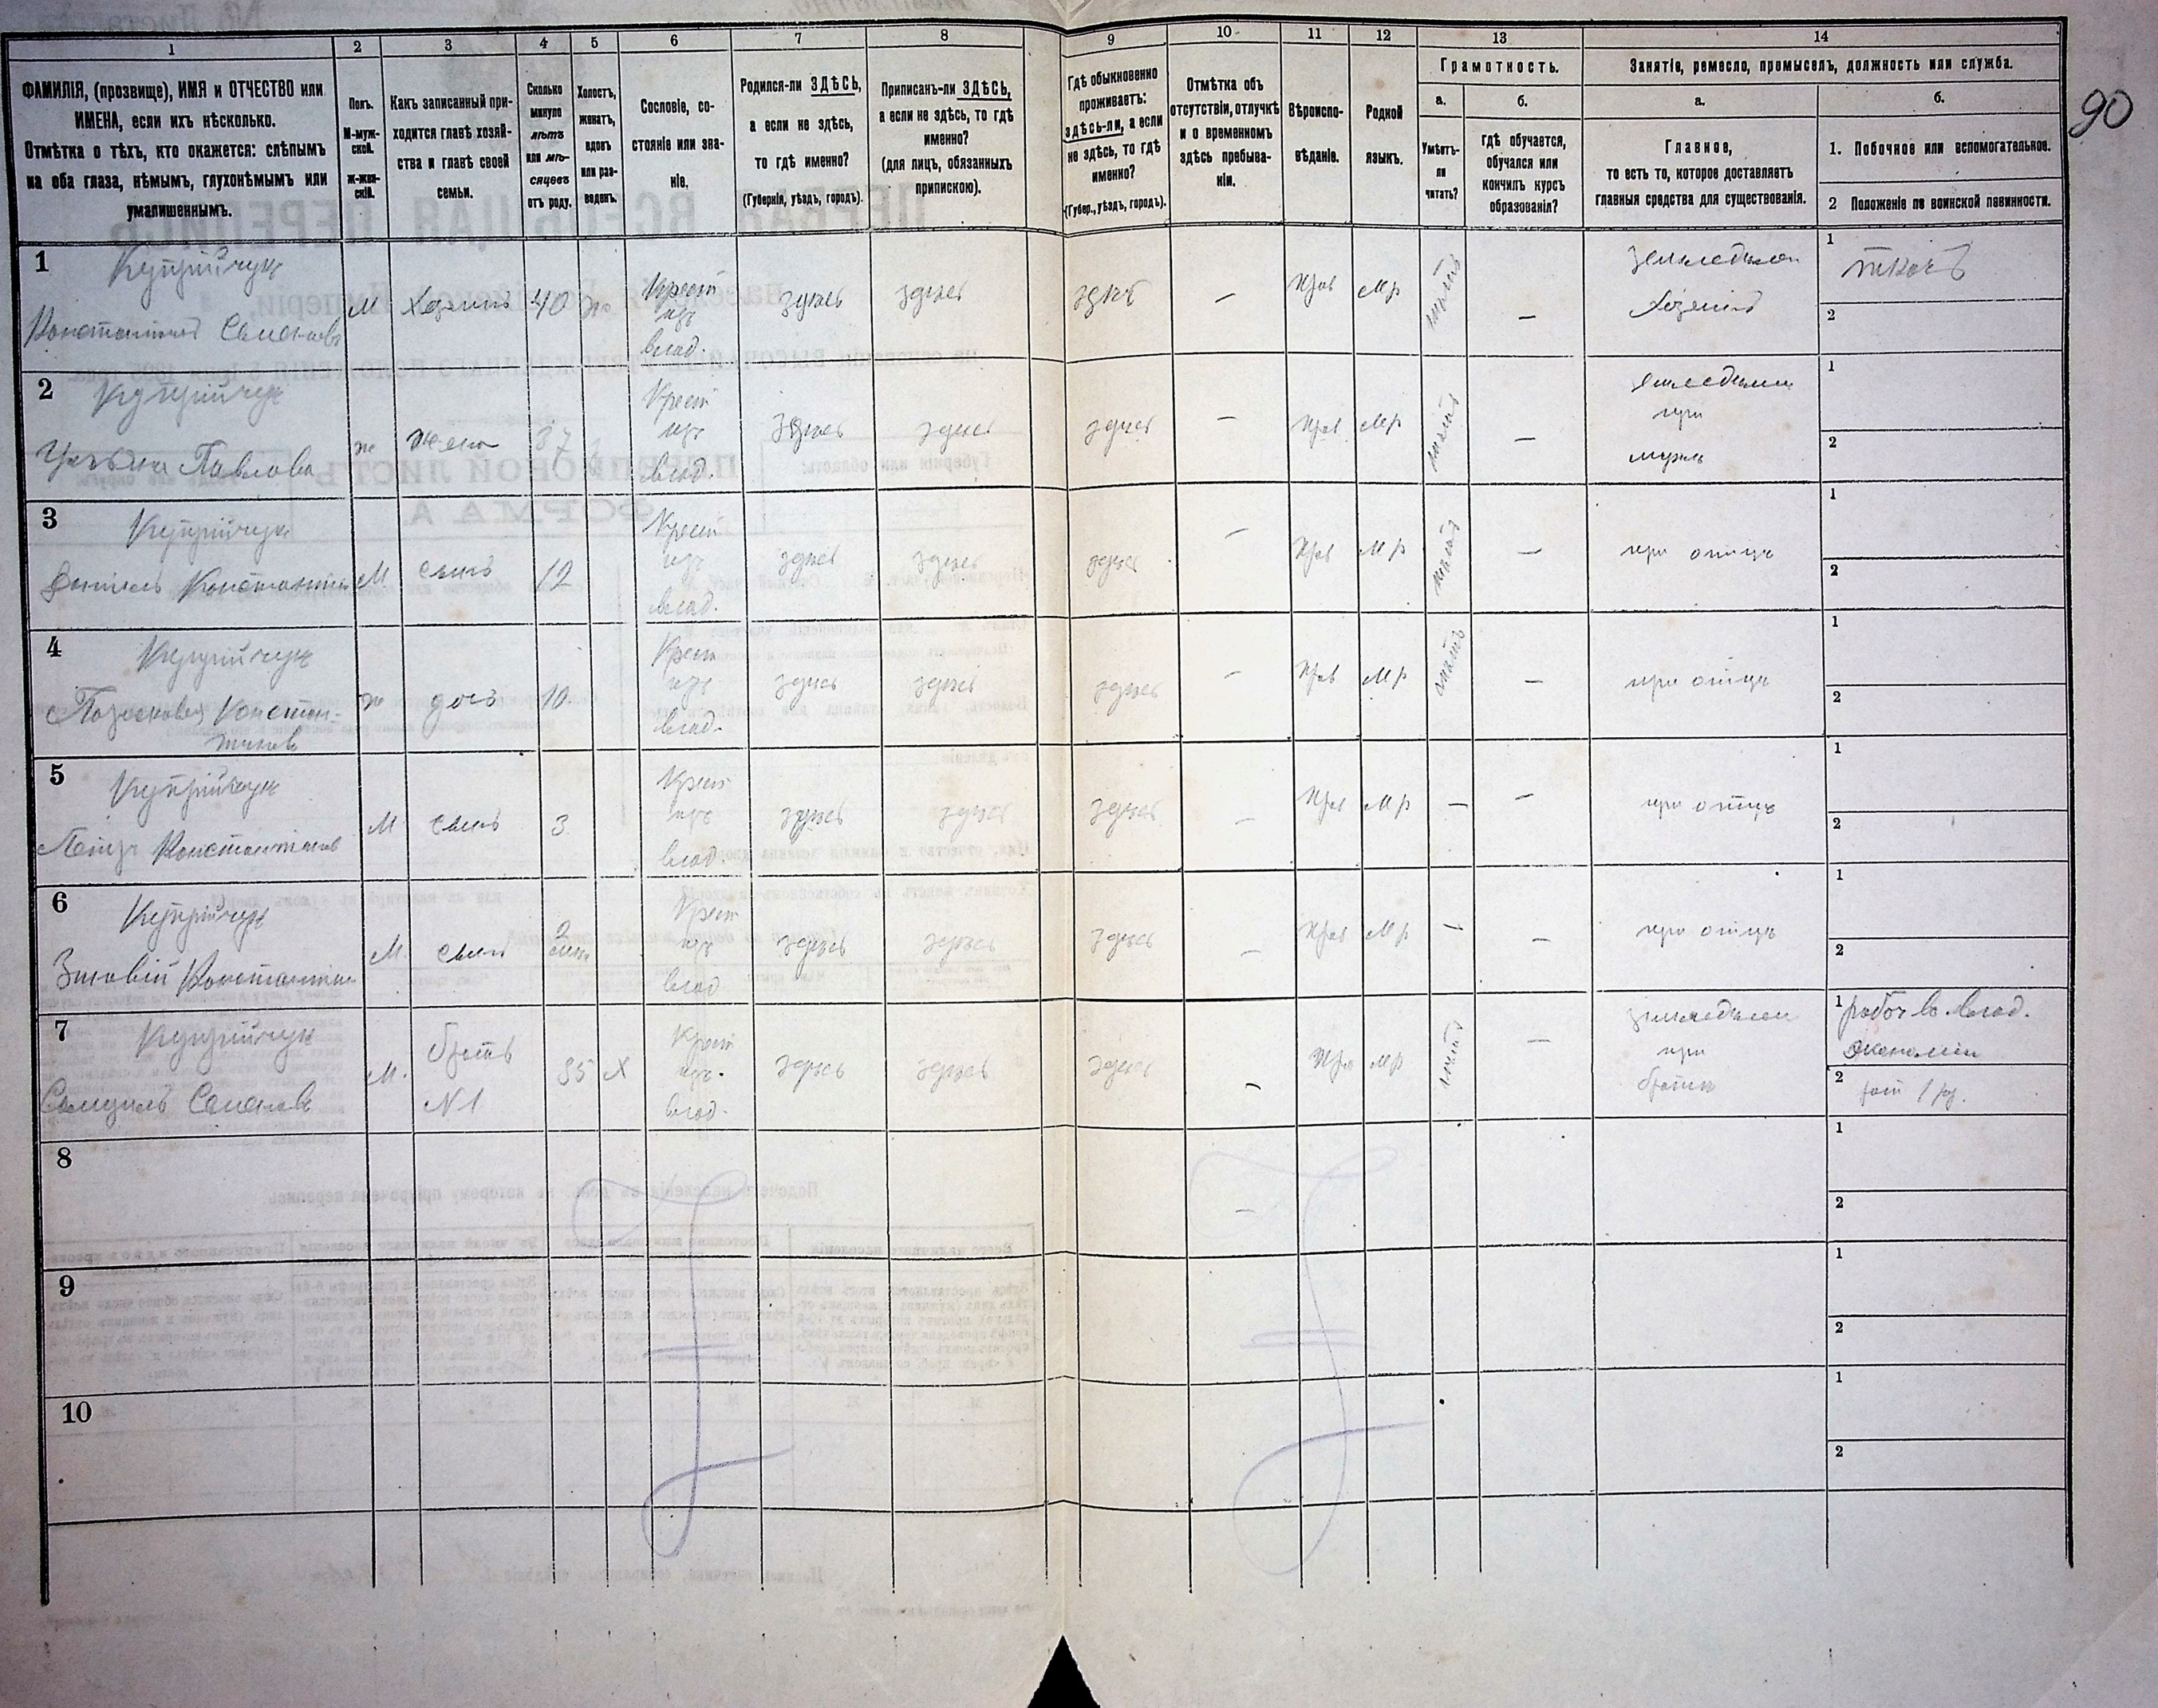 90
1 2 3 4 5 6 7 8 9 10 11 12 13 14
ФАМИЛІЯ, (прозвище), ИМЯ и ОТЧЕСТВО или
ИМЕНА, если ихъ нѣсколько.
Отмѣтка о тѣхъ, кто окажется: слѣпымъ
на оба глаза, нѣмымъ, глухонѣмымъ или
умалишеннымъ.
Полъ.
М-муж-
ской.
Ж-жен-
скій.
Какъ записанный при-
ходится главѣ хозяй-
ства и главѣ своей
семьи.
Сколько
минуло
лѣтъ
или мѣ-
сяцевъ
отъ роду.
Холостъ,
женатъ,
вдовъ
или раз-
веденъ.
Сословіе, со-
стояніе или зва-
ніе.
Родился-ли ЗДѢСЬ,
а если не здѣсь,
то гдѣ именно?
(Губернія, уѣздъ, городъ).
Приписанъ-ли ЗДѢСЬ,
а если не здѣсь, то гдѣ
именно?
(для лицъ, обязанныхъ
припискою).
Гдѣ обыкновенно
проживаетъ:
здѣсь-ли, а если
не здѣсь, то гдѣ
именно?
(Губер., уѣздъ, городъ).
Отмѣтка объ
отсутствіи, отлучкѣ
и о временномъ
здѣсь пребыва-
ніи.
Вѣроиспо-
вѣданіе.
Родной
языкъ.
Грамотность.
а.
Умѣетъ-
ли
читать?
б.
гдѣ обучается,
обучался или
кончилъ курсъ
образованія?
Занятіе, ремесло, промыселъ, должность или служба.
а.
Главное,
то есть то, которое доставляетъ
главныя средства для существованія.
б.
1. Побочное или вспомогательное.
2 Положеніе по воинской повинности.
1 Куприйчук
Константинъ Семеновъ М Хозяинъ 40 ж Крест из влад. здѣсь здѣсь здѣсь — Прав Мр — земледѣлец хозяинъ
1 ткачъ
2
2 Куприйчук
Ульяна Павлова ж жена 37 Крест из влад. здѣсь здѣсь здѣсь — Прав Мр — земледѣлец при мужѣ
1
2
3 Куприйчук
Данилъ Константин М сынъ 12 Крест из влад. здѣсь здѣсь здѣсь — Прав Мр — при отцѣ
1
2
4 Куприйчук
Парасковея Констан-
тинов ж дочь 10 Крест из влад. здѣсь здѣсь здѣсь — Прав Мр — при отцѣ
1
2
5 Куприйчук
Петръ Константинов М сынъ 3 Крест из влад здѣсь здѣсь здѣсь — Прав Мр — — при отцѣ
1
2
6 Куприйчук
Зиновій Константин М. сынъ 2 Крест из влад здѣсь здѣсь здѣсь — Прав Мр — — при отцѣ
1
2
7 Куприйчук
Самуилъ Семенов М. братъ №1 35 Х Крест из. влад. здѣсь здѣсь здѣсь — Прав Мр — земледѣлец при братѣ
1 рабоч. в влад.
экономіи
2
8
1
2
9
1
2
10
1
2